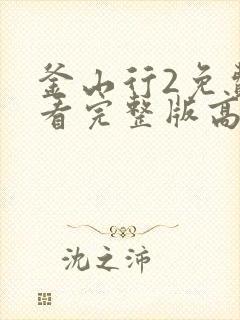 釜山行2免费
看完整版高
沈之沛